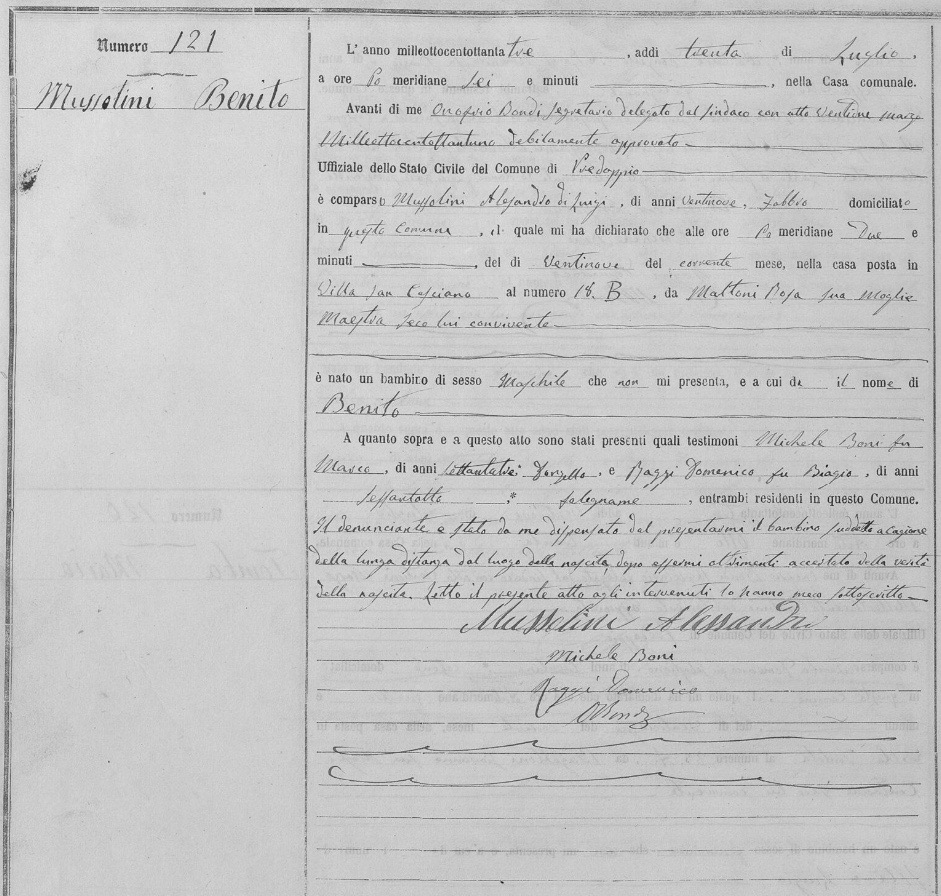 Numero 121
Mussolini Benito
L' anno milleottocentottanta tre, addi trenta di Luglio,
a ore Po meridiane sei e minuti, nella Casa comunale.
Avanti di me Onofrio Bondi, segretario delegato dal sindaco con atto Ventuno marzo
Milleottocentottantuno debitamente approvato
Uffiziale dello Stato Civile del Comune di Predappio
è comparso Mussolini Alesandro di Luigi, di anni ventinove, Fabbro domiciliato
in questo Comune, il quale mi ha dichiarato che alle ore Po meridiane Due e
minuti, del di Ventinove del corrente mese, nella casa posta in
Villa San Casciano al numero 18. B, da Maltoni Rosa sua Moglie
Maestra seco lui convivente
è nato un bambino di sesso Maschile che non mi presenta, e a cui da il nome di
Benito
A quanto sopra e a questo atto sono stati presenti quali testimoni Michele Boni fu
Marco, di anni settantatre Donzello, e Raggi Domenico fu Biagio, di anni
sessantotto falegname, entrambi residenti in questo Comune.
Il denunciante e stato da me dispensato dal presentarmi il bambino suddetto a cagione
della lunga distanza dal luogo della nascita dopo essermi altrimenti accertato della verità
della nascita. Letto il presente atto agli intervenuti lo hanno meco sottoscritto
Mussolini Alessandro
Michele Boni
Raggi Domenico
OBondi